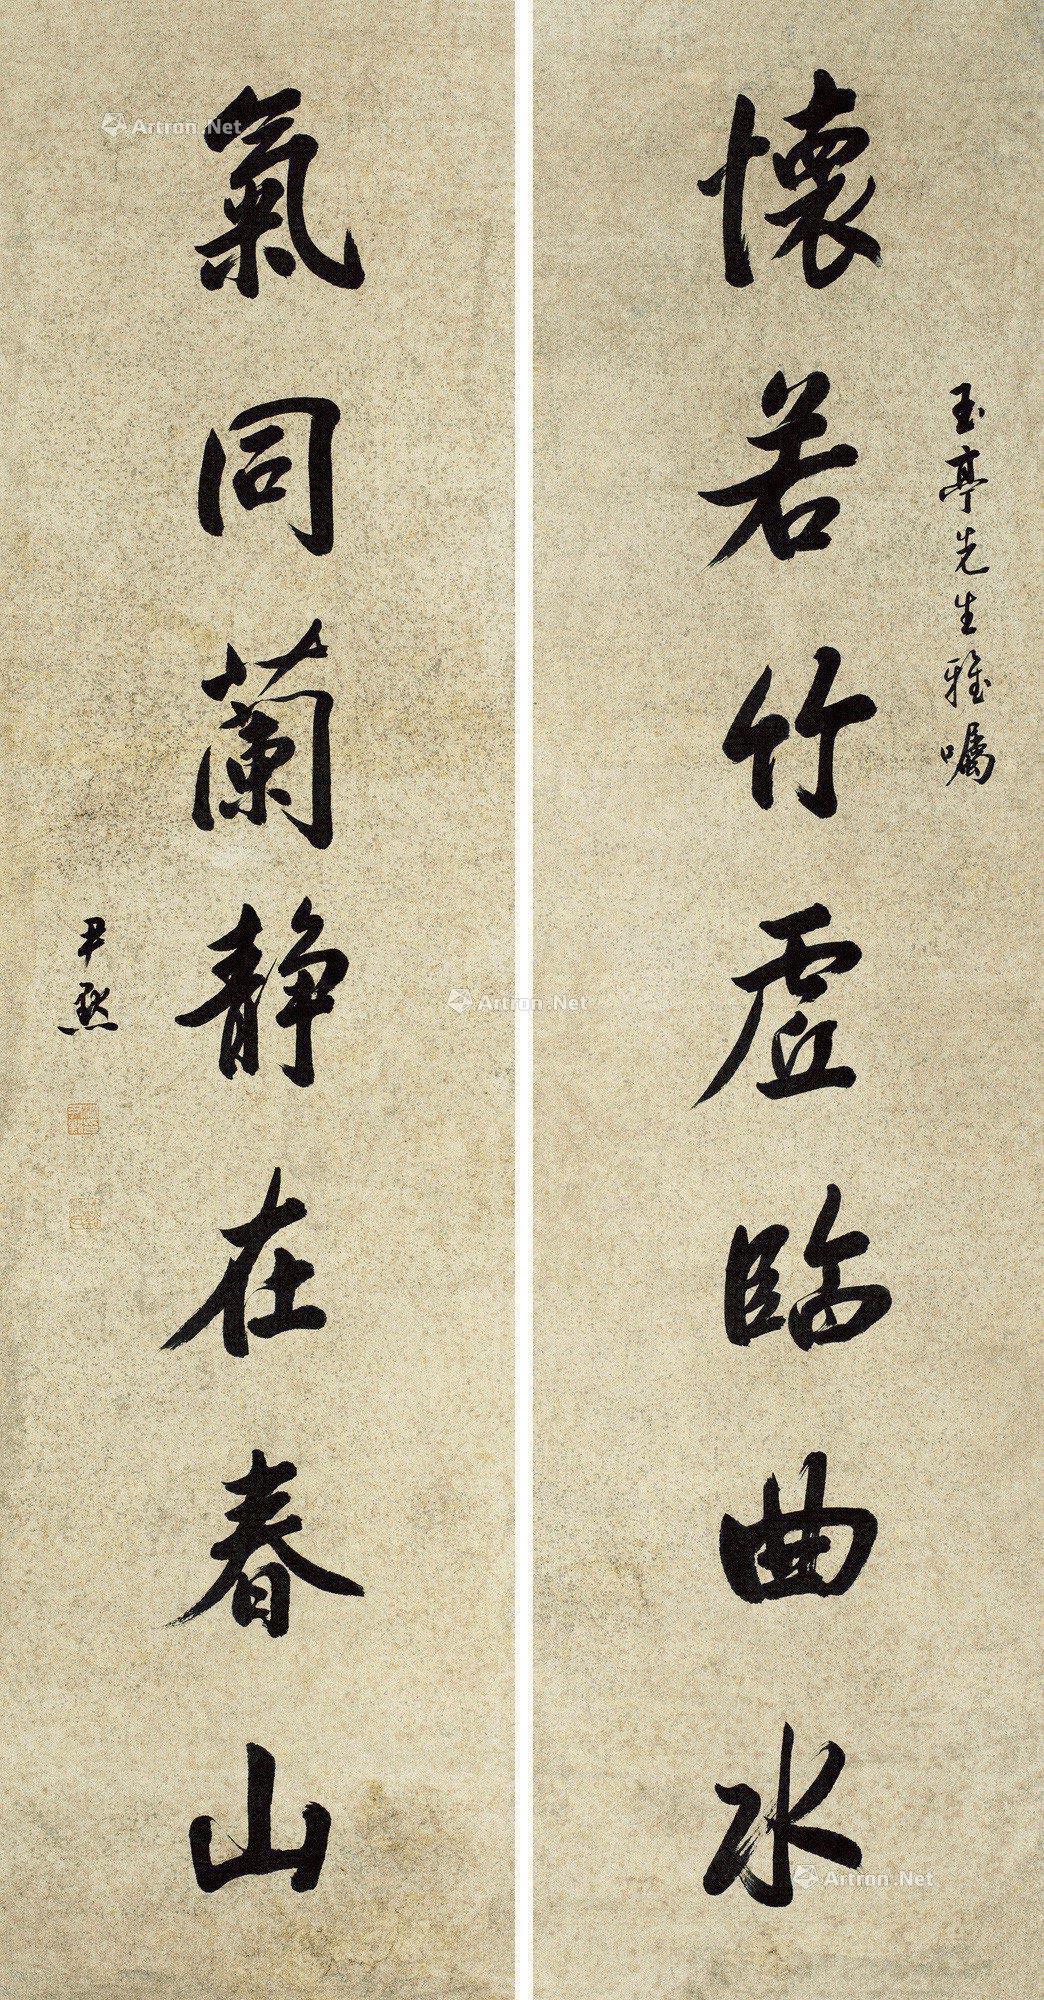 懷若竹虛臨曲水
玉亭先生雅囑
氣同蘭靜在春山
尹默
Artron.Net
Artron.Net
Artron.Net